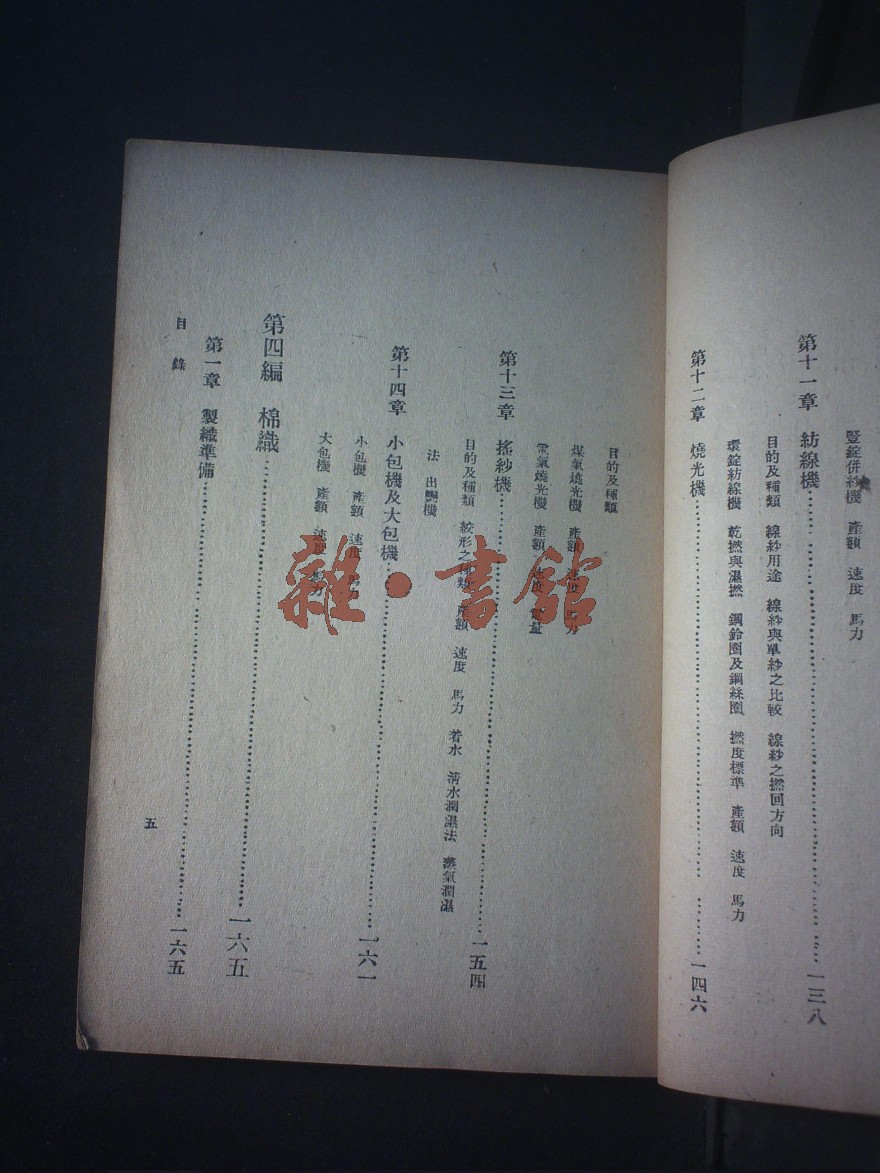 豎錠併紗機　產額　速度　馬力
第十一章　紡線機……一三八
目的及種類　線紗用途　線紗與單紗之比較　線紗之撚回方向
環錠紡線機　乾撚與濕撚　鋼鈴圈及鋼絲圈　撚度標準　產額　速度　馬力
第十二章　燒光機……一四六
目的及種類
煤氣燒光機　產額　速度　馬力
電氣燒光機　產額　速度　電量
第十三章　搖紗機……一五四
目的及種類　絞形之種類　產額　速度　馬力　着水　清水潤濕法　蒸氣潤濕
法　出彎機
第十四章　小包機及大包機……一六一
小包機　產額　速度　馬力
大包機　產額　速度　馬力
第四編　棉織……一六五
第一章　製織準備……一六五
目錄
五
雜·書館